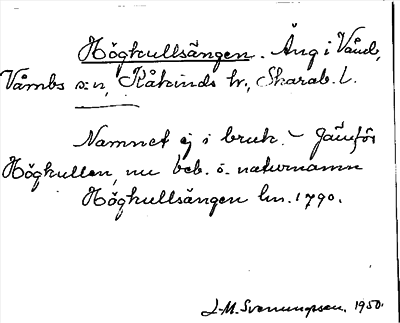 Högkullsängen. Äng i Våmb,
Våmbs s:n, Kåkinds hr, Skarab. l.
Namnet ej i bruk. - Jämför
Högkullen, nu beb. o. naturnamn
Högkullsängen hn. 1790.
J-M. Svenungsson. 1950.